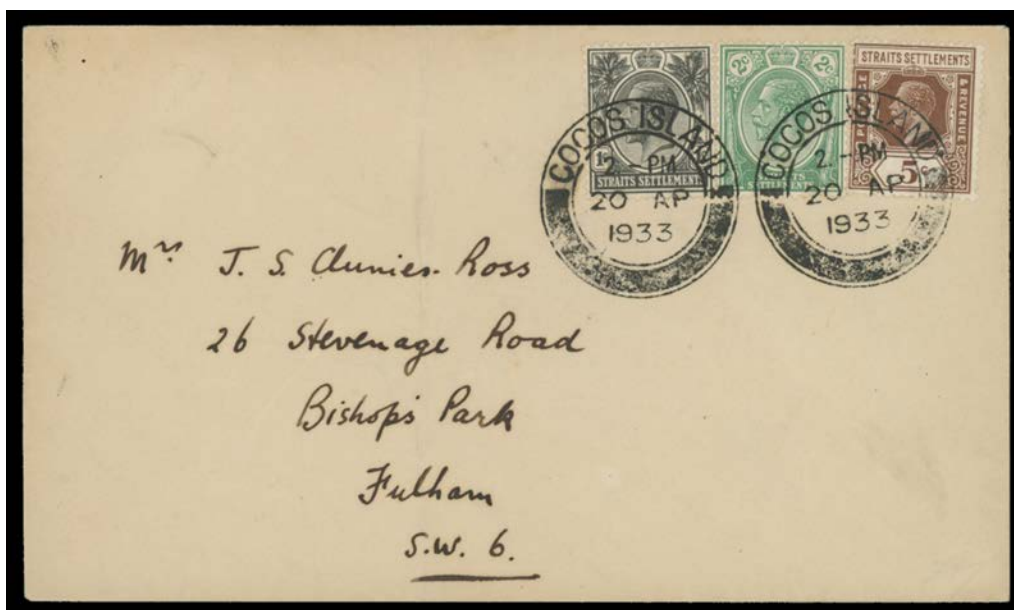 1c
STRAITS SETTLEMENTS
2c 2c
SETTLEMENTS
STRAITS SETTLEMENTS
POSTAGE & REVENUE
5c
COCOS ISLAND
2.-PM
20 AP
1933
COCOS ISLAND
2.-PM
20 AP
1933
Mrs. J. S. Clunies-Ross
26 Stevenage Road
Bishop's Park
Fulham
S.W. 6.